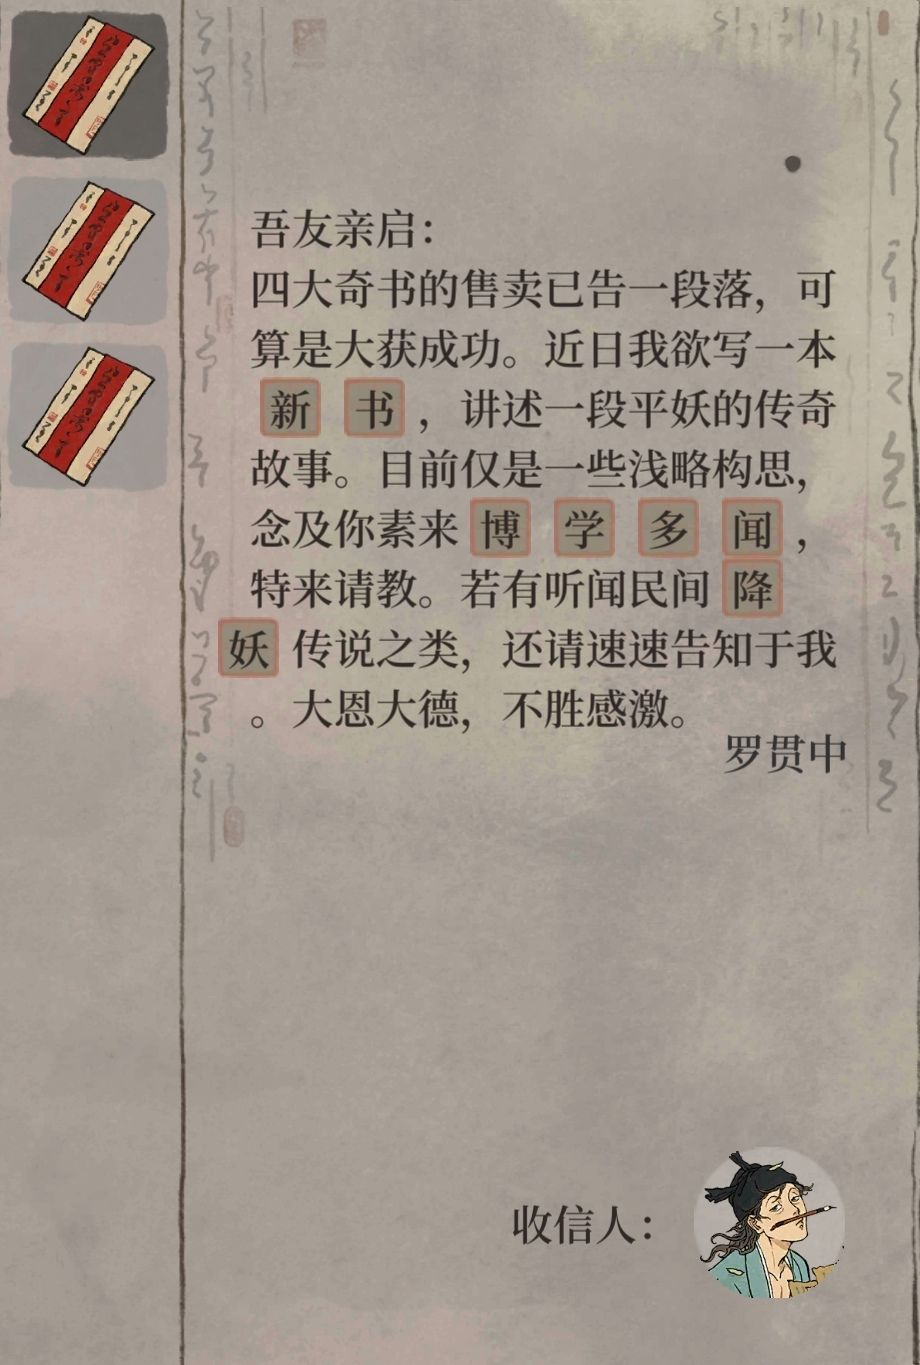 吾友亲启：
四大奇书的售卖已告一段落，可
算是大获成功。近日我欲写一本
新书，讲述一段平妖的传奇
故事。目前仅是一些浅略构思，
念及你素来博学多闻，
特来请教。若有听闻民间降
妖传说之类，还请速速告知于我
。大恩大德，不胜感激。
罗贯中
收信人：